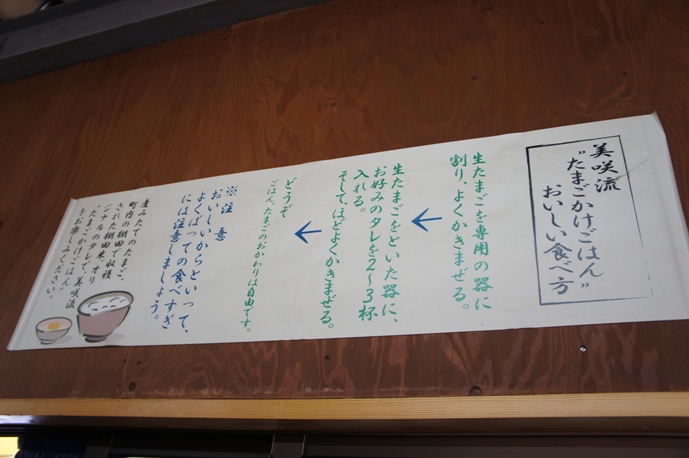 美咲流
"たまごかけごはん"
おいしい食べ方
生たまごを専用の器に
割り、よくかきまぜる。
生たまごをといた器に、
お好みのタレを2～3杯
入れる。
そして、ほどよくかきまぜる。
どうぞ
ごはん、たまごのおかわりは自由です。
※注意
おいしいからといって、
よくばっての食べすぎ
には注意しましょう。
産みたてのたまご、
町内の棚田で収穫
された棚田米、オリ
ジナルのタレで、美咲流
"たまごかけごはん"
をお楽しみください。